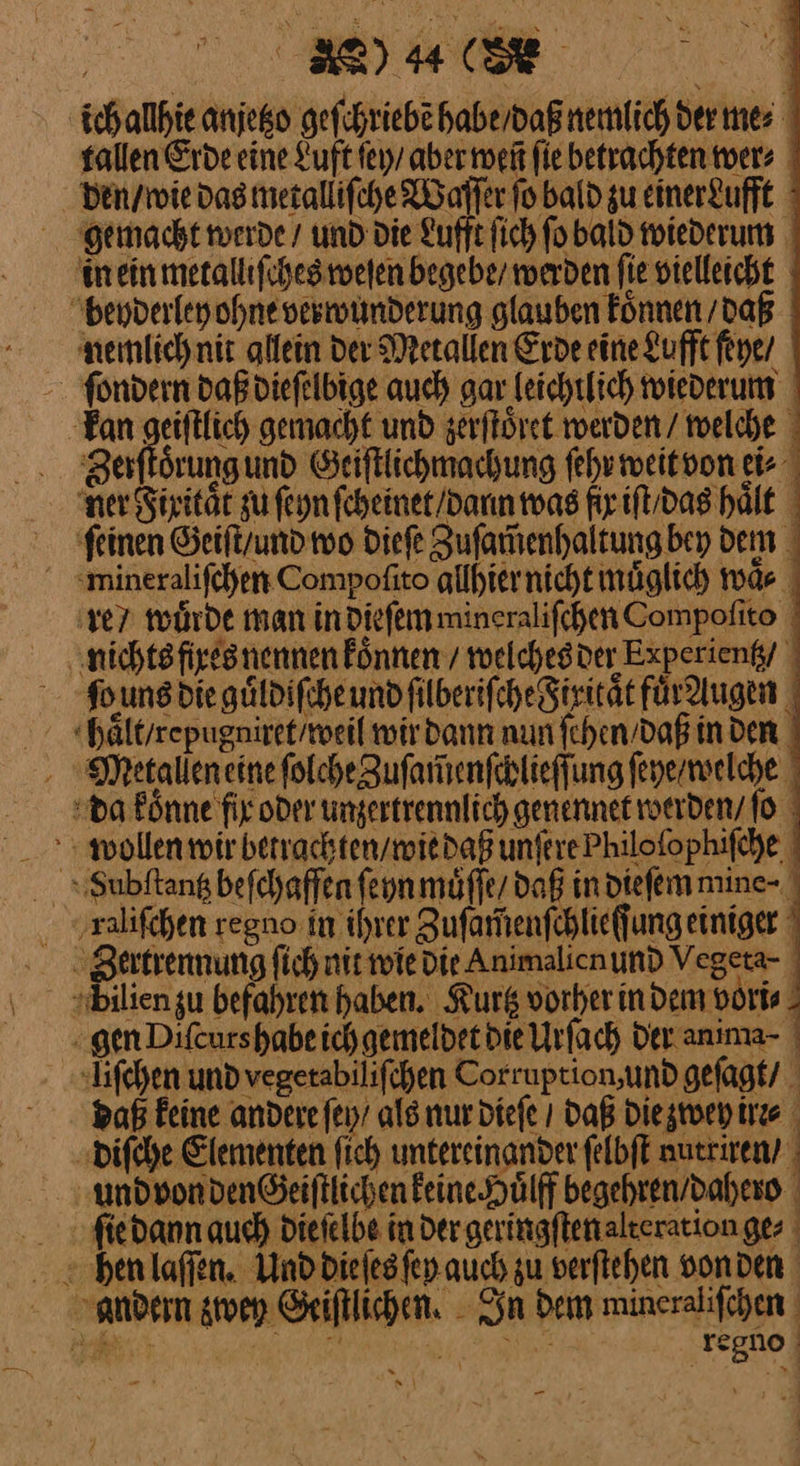 ) 44 (
ich allhie anjetzo geſchriebē habe/daß nemlich der me⸗
tallen Erde eine Luft ſey/ aber weñ ſie betrachten wer⸗
den/wie das metalliſche Waſſer ſo bald zu einer Lufft
gemacht werde / und die Lufft ſich ſo bald wiederum
in ein metalliſches weſen begebe/ werden ſie vielleicht
beyderley ohne verwunderung glauben koͤnnen / daß
nemlich nit allein der Metallen Erde eine Lufft ſeye/
ſondern daß dieſelbige auch gar leichtlich wiederum
kan geiſtlich gemacht und zerſtoͤret werden / welche
Zerſtoͤrung und Geiſtlichmachung ſehr weit von ei⸗
ner Fixitaͤt zu ſeyn ſcheinet/dann was fix iſt/das haͤlt
ſeinen Geiſt/und wo dieſe Zuſam̃enhaltung bey dem
mineraliſchen Compoſito allhier nicht muͤglich waͤ⸗
re/ wuͤrde man in dieſem mineraliſchen Compoſito
nichts fixes nennen koͤnnen / welches der Experientz/
ſo uns die guͤldiſche und ſilberiſche Fixitaͤt fuͤr Augen
haͤlt/repugniret/weil wir dann nun ſehen/daß in den
Metallen eine ſolche Zuſam̃enſchlieſſung ſeye/welche
da koͤnne fix oder unzertrennlich genennet werden/ ſo
wollen wir betrachten/wie daß unſere Philoſophiſche
Subſtantz beſchaffen ſeyn muͤſſe/ daß in dieſem mine-
raliſchen regno in ihrer Zuſam̃enſchlieſſung einiger
Zertrennung ſich nit wie die Animalien und Vegeta-
bilien zu befahren haben. Kurtz vorher in dem vori⸗
gen Diſcurs habe ich gemeldet die Urſach der anima-
liſchen und vegetabiliſchen Corruption, und geſagt/
daß keine andere ſey/ als nur dieſe / daß die zwey irr⸗
diſche Elementen ſich untereinander ſelbſt nutriren/
und von den Geiſtlichen keine Huͤlff begehren/dahero
ſie dann auch dieſelbe in der geringſten alteration ge⸗
hen laſſen. Und dieſes ſey auch zu verſtehen von den
andern zwey Geiſtlichen. In dem mineraliſchen
regno